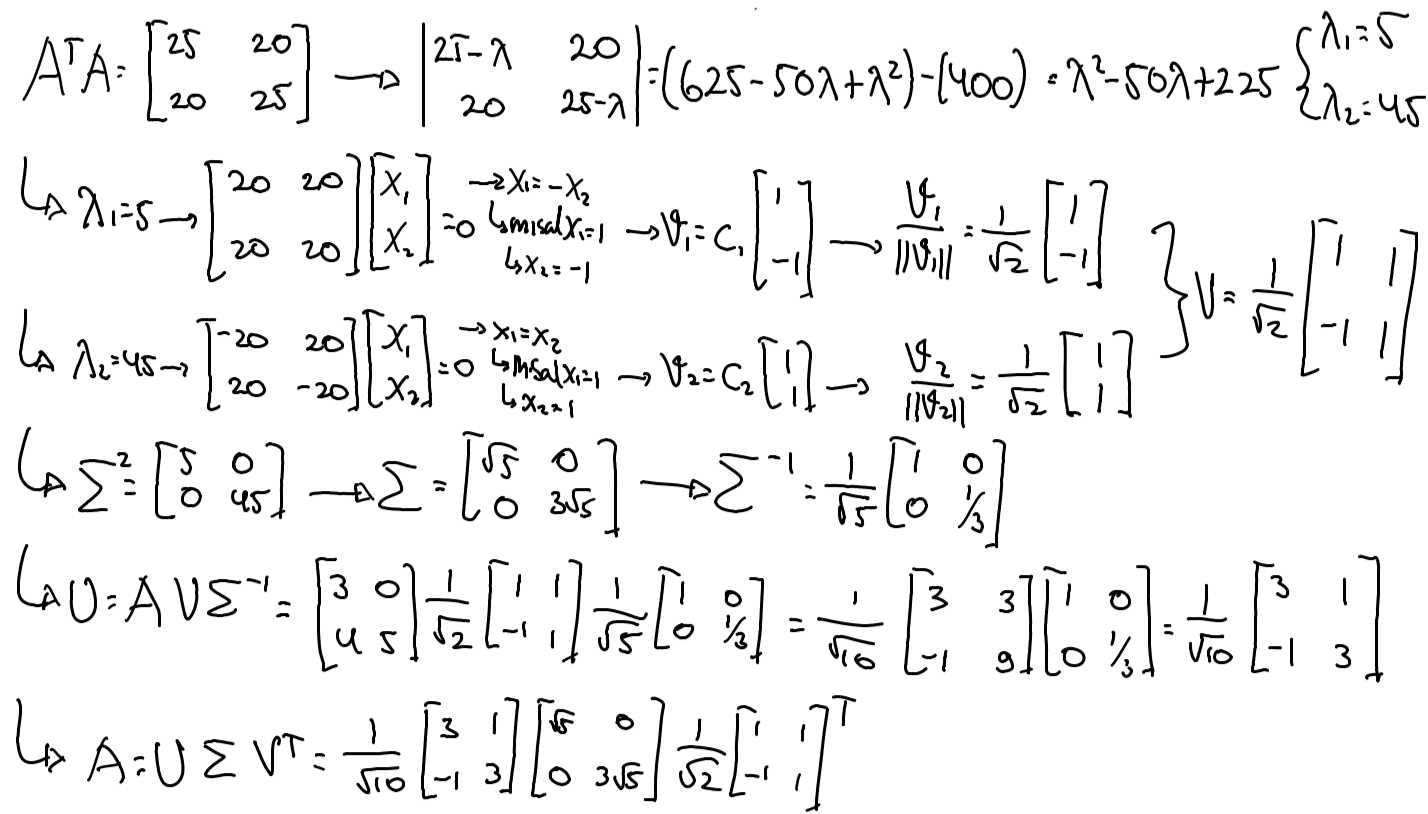 AᵀA = [25 20; 20 25] → |25-λ 20; 20 25-λ| = (625-50λ+λ²)-(400) = λ²-50λ+225 {λ₁=5; λ₂=45
↳ λ₁=5 → [20 20; 20 20][X₁; X₂] = 0 → X₁=-X₂ ↳ misal X₁=1 ↳ X₂=-1 → V₁ = C₁[1; -1] → V₁/||V₁|| = 1/√2 [1; -1]
↳ λ₂=45 → [-20 20; 20 -20][X₁; X₂] = 0 → X₁=X₂ ↳ misal X₁=1 ↳ X₂=1 → V₂ = C₂[1; 1] → V₂/||V₂|| = 1/√2 [1; 1]
} V = 1/√2 [1 1; -1 1]
↳ Σ² = [5 0; 0 45] → Σ = [√5 0; 0 3√5] → Σ⁻¹ = 1/√5 [1 0; 0 1/3]
↳ U = A V Σ⁻¹ = [3 0; 4 5] 1/√2 [1 1; -1 1] 1/√5 [1 0; 0 1/3] = 1/√10 [3 3; -1 9][1 0; 0 1/3] = 1/√10 [3 1; -1 3]
↳ A = U Σ Vᵀ = 1/√10 [3 1; -1 3][√5 0; 0 3√5] 1/√2 [1 1; -1 1]ᵀ